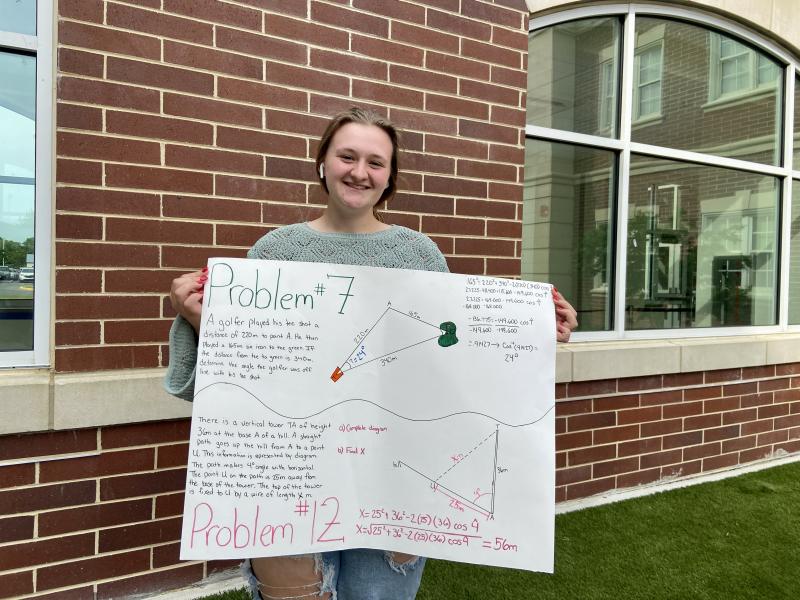 Problem #7
A golfer played his tee shot a
distance of 220m to point A. He then
played a 165m six iron to the green. If
the distance from tee to green is 340m.
determine the angle the golfer was off
line with his tee shot.
A
220m
165m
340m
?=24°
165² = 220² + 340² - 2(220)(340) cos
-149,600 -149,600
24°
There is a vertical tower TA of height
36m at the base A of a hill. A straight
path goes up the hill from A to a point
U. This information is represented by diagram
The path makes 4° angle with horizontal.
The point U on the path is 25m away from
the base of the tower. The top of the tower
is fixed to U by a wire of length x m.
a) Complete diagram
b) Find X
hill
T
36m
U
25m
A
Problem #12
X = 25² + 36² - 2(25)(36) cos 4
X = √25² + 36² - 2(25)(36) cos 4 = 56m